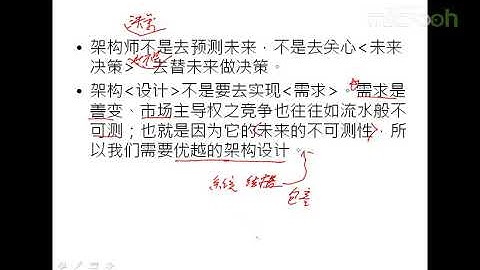 决策
架构师不是去预测未来，不是去关心<未来
决策>，去替未来做决策。
架构<设计>不是要去实现<需求>。需求是
善变、市场主导权之竞争也往往如流水般不
可测；也就是因为它的<未来的不可测性>，所
以我们需要优越的架构设计。
系统 结构
包容